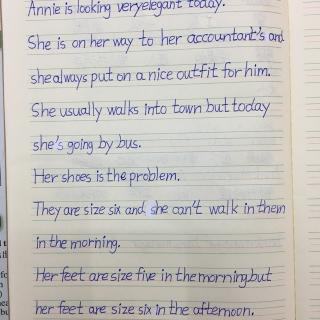 Annie is looking very elegant today.
She is on her way to her accountant's and
she always put on a nice outfit for him.
She usually walks into town but today
she's going by bus.
Her shoes is the problem.
They are size six and she can't walk in them
in the morning.
Her feet are size five in the morning but
her feet are size six in the afternoon.